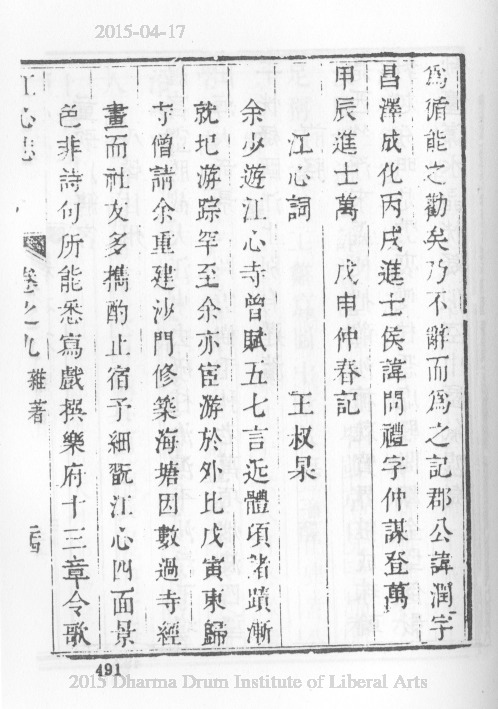 2015-04-17
為循能之勸矣乃不辭而為之記郡公諱潤字
昌澤成化丙戌進士侯諱問禮字仲謀登萬
甲辰進士萬 戊申仲春記
江心詞 王叔杲
余少遊江心寺曾賦五七言近體頃者蹟漸
就圮游踪罕至余亦宦游於外比戊寅東歸
寺僧請余重建沙門修築海塘因數過寺經
畫而社友多攜酌止宿予細翫江心四面景
色非詩句所能悉寫戲撰樂府十三章令歌
江心志 卷之九 雜著
491
2015 Dharma Drum Institute of Liberal Arts